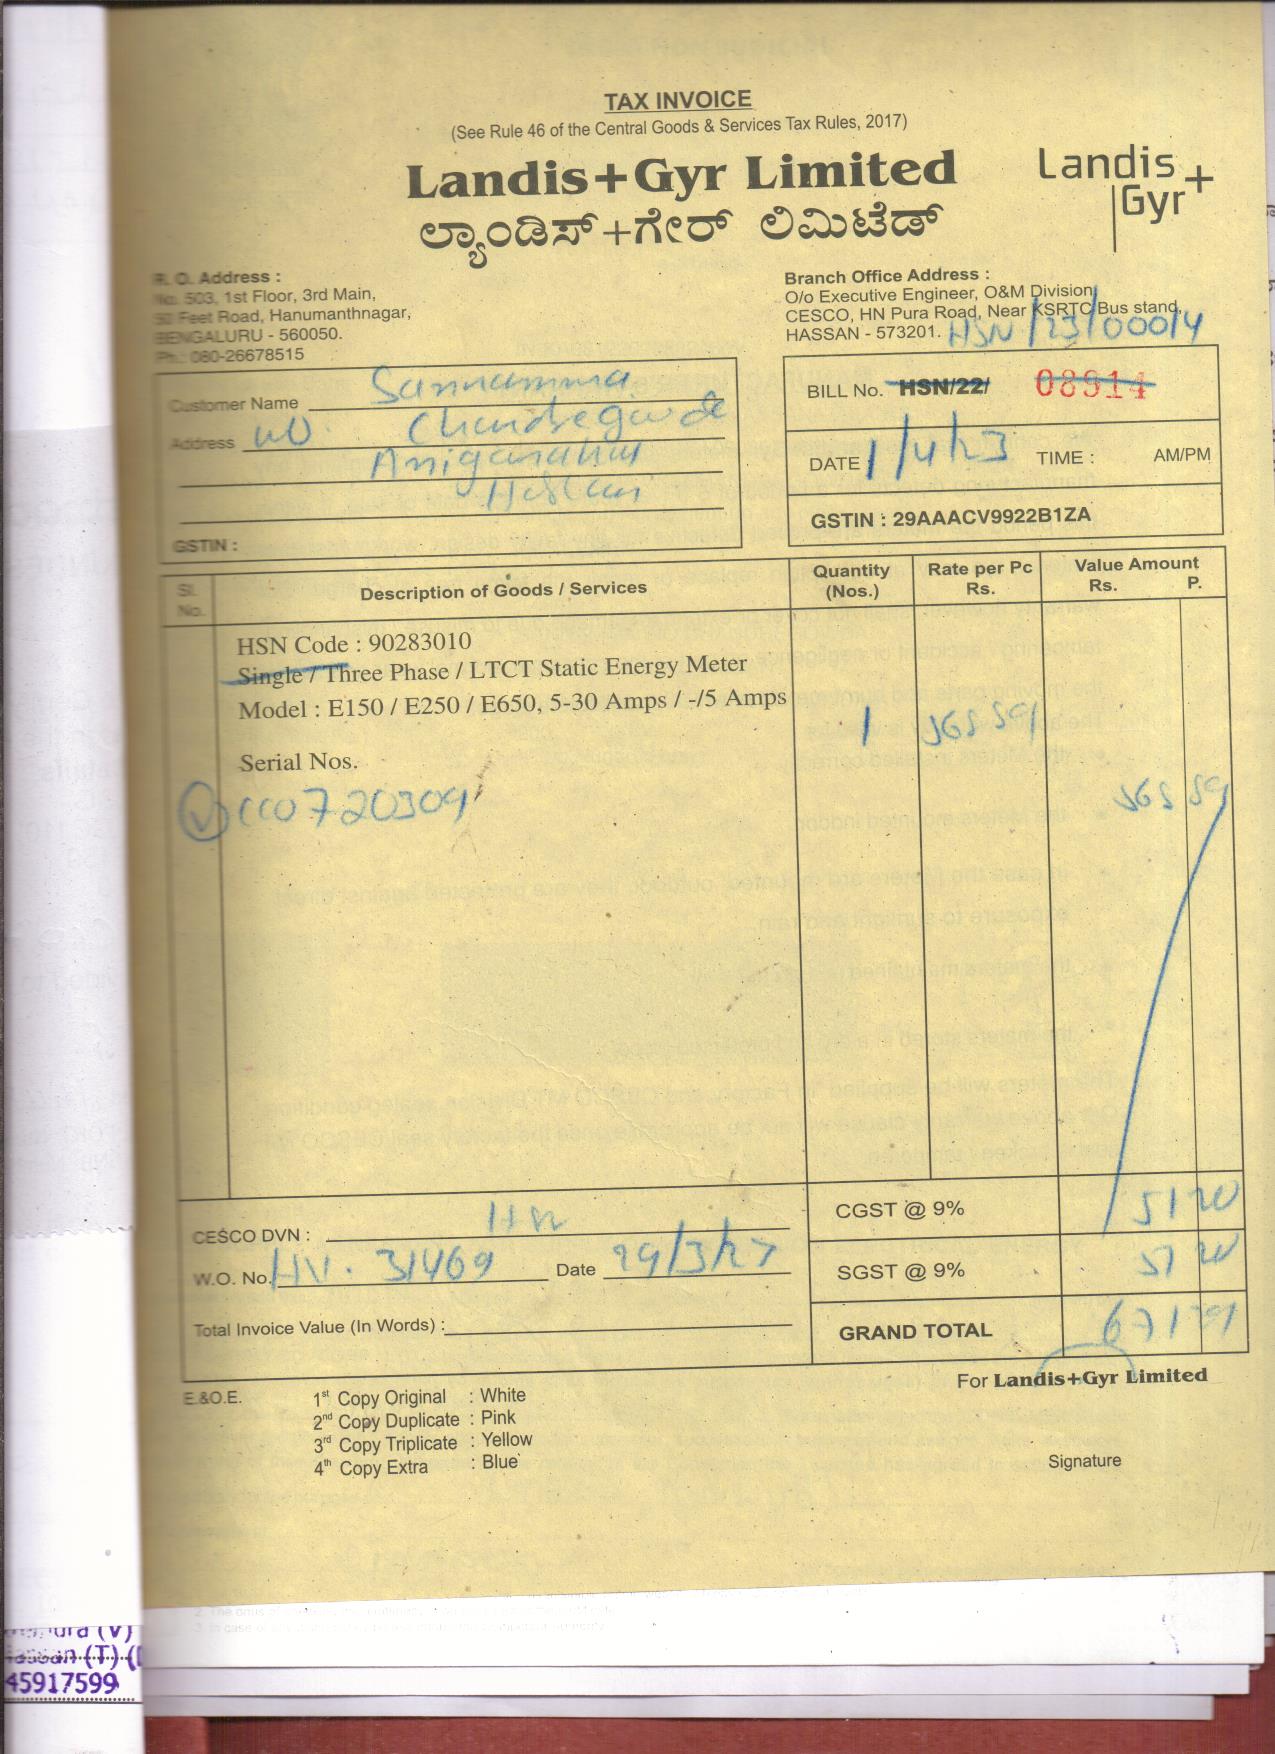 TAX INVOICE
(See Rule 46 of the Central Goods & Services Tax Rules, 2017)
Landis+Gyr Limited
ಲ್ಯಾಂಡಿಸ್+ಗೇರ್ ಲಿಮಿಟೆಡ್
Landis
Gyr+
R. O. Address :
No. 503, 1st Floor, 3rd Main,
50 Feet Road, Hanumanthnagar,
BENGALURU - 560050.
Ph.: 080-26678515
Branch Office Address :
O/o Executive Engineer, O&M Division,
CESCO, HN Pura Road, Near KSRTC Bus stand,
HASSAN - 573201.
HSN/23/00014
Customer Name Sannamma
Address W/O. Chandregowda
Hassan
GSTIN :
BILL No. HSN/22/ 08914
DATE 1/4/23 TIME : AM/PM
GSTIN : 29AAACV9922B1ZA
Sl. No. Description of Goods / Services Quantity (Nos.) Rate per Pc Rs. Value Amount Rs. P.
HSN Code : 90283010
Single / Three Phase / LTCT Static Energy Meter
Model : E150 / E250 / E650, 5-30 Amps / -/5 Amps 1 568 89
Serial Nos.
568 89
CGST @ 9% 51 20
CESCO DVN : HN
W.O. No. HN. 31469 Date 29/3/23
SGST @ 9% 51 20
Total Invoice Value (In Words) :
GRAND TOTAL 671 29
For Landis+Gyr Limited
E.&O.E.
1st Copy Original : White
2nd Copy Duplicate : Pink
3rd Copy Triplicate : Yellow
4th Copy Extra : Blue
Signature
45917599